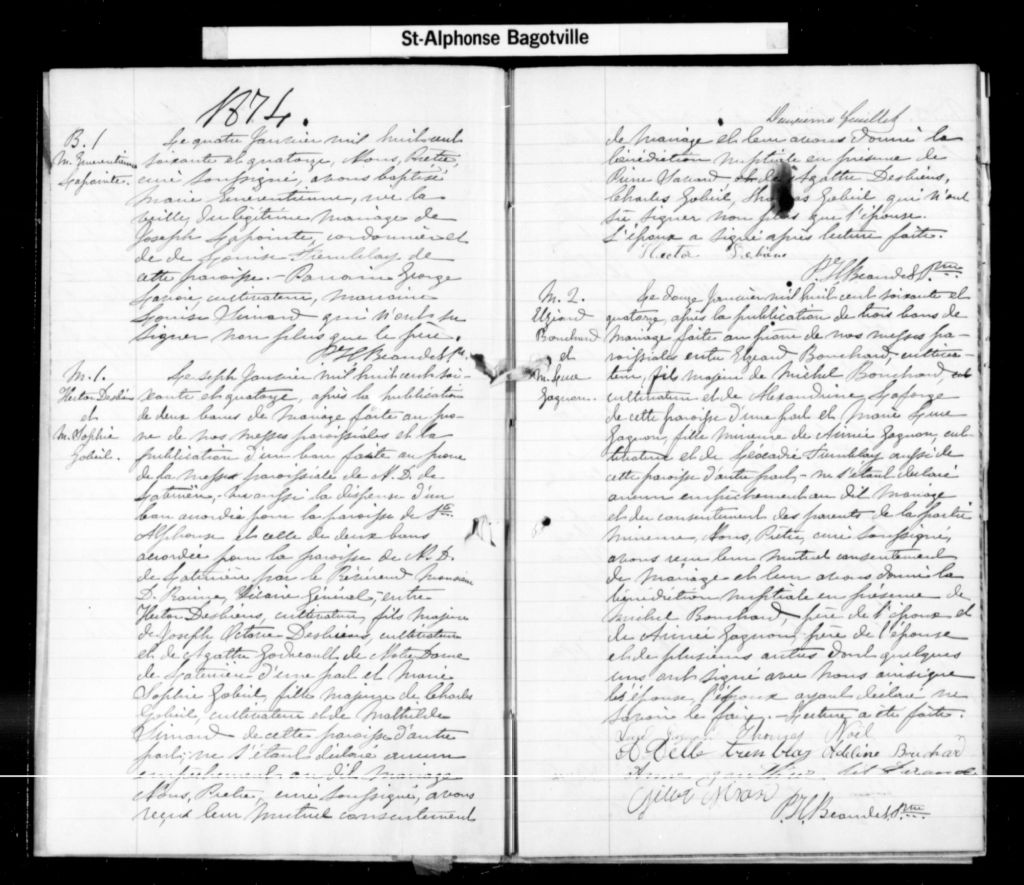 St-Alphonse Bagotville
1874.
B. 1
M. Emerentienne
Lapointe.
Le quatre Janvier mil huit cent
soixante et quatorze, Nous, Prêtre,
curé soussigné, avons baptisé
Marie Emerentienne, née la
veille, du légitime mariage de
Joseph Lapointe, cordonnier et
de de Louise Tremblay de
cette paroisse. - Parrain George
cultivateur, marraine
Louise Simard qui n'ont su
signer non plus que le père.
M. 1.
Hector Desbiens
et
M. Sophie
Gobeil.
Le sept Janvier mil huit cent soi-
xante et quatorze, après la publication
de deux bans de mariage faite au prô-
ne de nos messes paroissiales et la
publication d'un ban faite au prône
de la messe paroissiale de N. D. de
Laterrière, - vu aussi la dispense d'un
ban accordée pour la paroisse de St.
Alphonse et celle de deux bans
accordée pour la paroisse de N. D.
de Laterrière par le Révérend Monsieur
D. Racine, Vicaire Général, entre
Hector Desbiens, cultivateur, fils majeur
de Joseph Octave Desbiens, cultivateur
et de Agathe Godreault de Notre Dame
de Laterrière d'une part et Marie
Sophie Gobeil, fille majeure de Charles
Gobeil, cultivateur et de Mathilde
Simard de cette paroisse d'autre
part; ne s'étant déclaré aucun
empêchement au dit mariage
Nous, Prêtre, curé soussigné, avons
reçu leur mutuel consentement
Deuxième feuillet
de mariage et leur avons donné la
bénédiction nuptiale en présence de
Pierre Savard de Agathe Desbiens,
Charles Gobeil, Gobeil, qui n'ont
su signer non plus que l'épouse.
L'époux a signé après lecture faite.
M. 2.
Elzéard
Bouchard
et
M. Luce
Gagnon.
Le douze Janvier mil huit cent soixante et
quatorze, après la publication de trois bans de
mariage faite au prône de nos messes pa-
roissiales entre Elzéard Bouchard, cultiva-
teur, fils majeur de Michel Bouchard,
cultivateur et de Alexandrine Laforge
de cette paroisse d'une part et Marie Luce
Gagnon, fille mineure de Aimée Gagnon, cul-
tivateur et de Léocadie Tremblay aussi de
cette paroisse d'autre part, - ne s'étant déclaré
aucun empêchement au dit mariage
et du consentement des parents de la partie
mineure, Nous, Prêtre, curé soussigné,
avons reçu leur mutuel consentement
de mariage et leur avons donné la
bénédiction nuptiale en présence de
Michel Bouchard, père de l'époux et
de Aimée Gagnon, père de l'épouse
et de plusieurs autres dont quelques
uns ont signé avec nous ainsi que
l'épouse, l'époux ayant déclaré ne
savoir le faire. - Lecture a été faite.
Thomas Noël
Adèle tremblay Adéline Bouchard